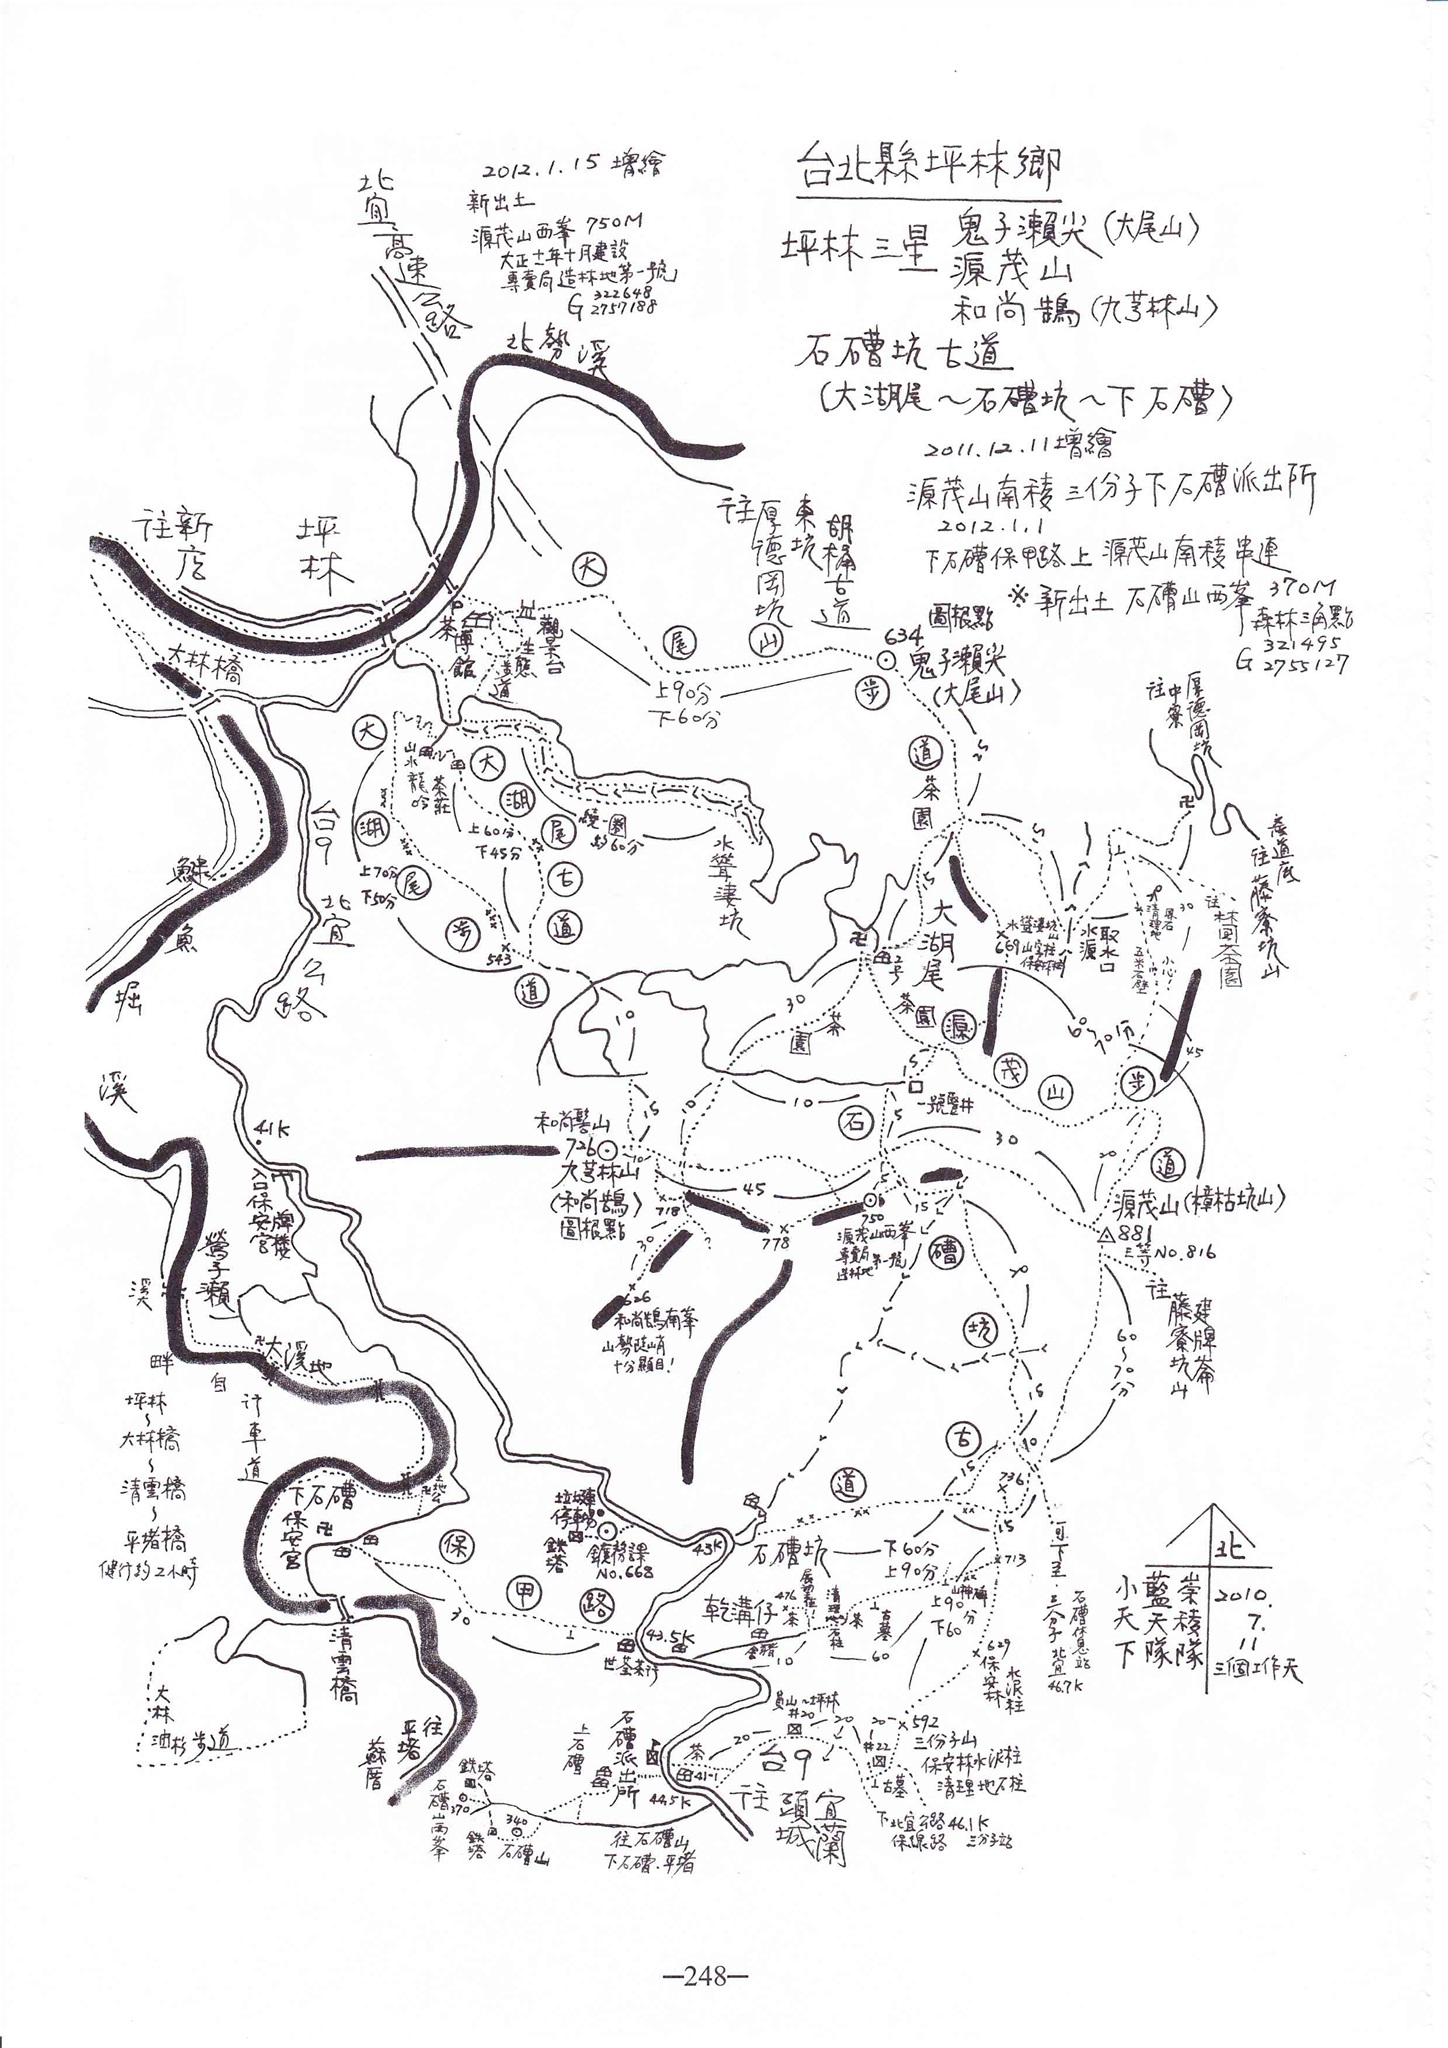 台北縣坪林鄉
坪林三星
鬼子瀨尖(大尾山)
源茂山
和尚鵠(九芎林山)
石碼坑古道
(大湖尾~石碼坑~下石碼)
2011.12.11增繪
源茂山南稜三份子下石碼派出所
2012.1.1
下石碼保甲路上源茂山南稜串連
※新出土 石碼山西峯 370M
森林三角點
321495
G 2755127
2012.1.15增繪
新出土
源茂山西峯 750M
大正十一年十月建設
專賣局造林地第一號
322648
G 2757188
北宜高速公路
北勢溪
往新店
坪林
大林橋
茶博館
觀景台
生態步道
往厚德岡坑
東坑
胡桶古道
大尾山步道
上90分
下60分
圖根點
634
鬼子瀨尖
(大尾山)
茶園
往中寮
厚德岡坑
產道底
往藤寮坑山
大湖尾步道
上70分
下50分
山水龍吟
茶莊
大湖尾古道
上60分
下45分
543
繞一圈
約60分
水聳淒坑
台9
北宜公路
鰱魚堀溪
大湖尾
2号
茶園
669
水源
取水口
往茶園
30
60~70分
45
源茂山步道
茶園
30
10
10
15
一號豎井
石碼坑古道
30
和尚髻山
726
九芎林山
(和尚鵠)
圖根點
718
45
778
750
源茂山西峯
專賣局
造林地
第一號
626
和尚鵠南峯
山勢陡峭
十分顯目!
30
源茂山(樟枯坑山)
881
三等No.816
往藤寮坑山
建牌崙
60~70分
41K
入口保安宮
牌樓
鶯子瀨
溪畔自行車道
大溪地
坪林
~
大林橋
~
清雲橋
~
平堵橋
健行約2小時
下石碼
保安宮
土地公
保甲路
30
垃圾車
停車場
鉄塔
鑛務課
No.668
43K
石碼坑
下60分
上90分
736
15
10
713
可下至三分子北宜46.7K
石碼休息站
乾溝仔
476
茶
茶
古墓
10
60
上90分
下60
629
保安林
水泥柱
43.5K
世荃茶行
清雲橋
往平堵
蘇厝
大林
油杉步道
員山~坪林
#20
20
20
20
#22
592
三份子山
保安林水泥柱
清理地石柱
古墓
下北宜公路46.1K
保線路
三分子站
台9
往頭城
宜蘭
茶
41-1
44.5K
石碼派出所
上石碼
往石碼山
下石碼.平堵
鉄塔
370
石碼山西峯
鉄塔
340
石碼山
北
小天下
藍天隊
崇稜隊
2010.
7.
11
三個工作天
—248—